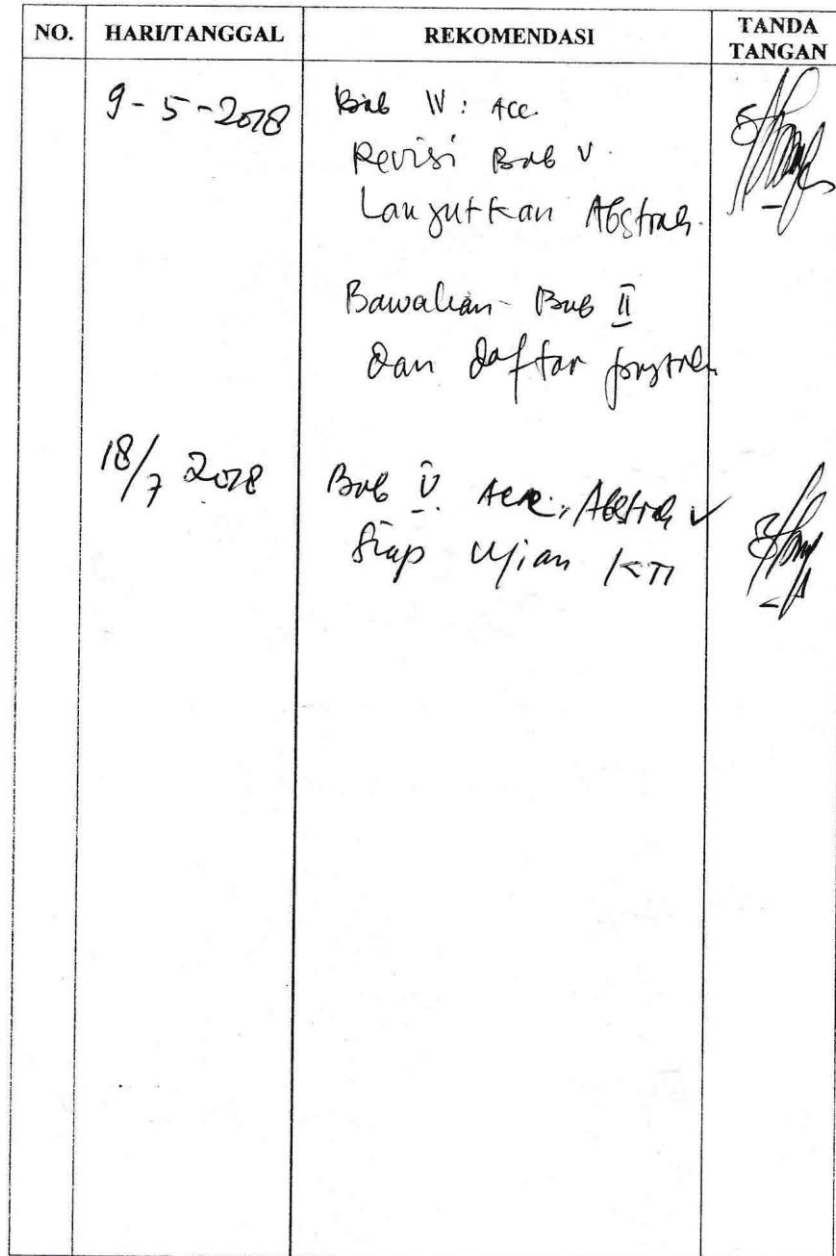 NO. HARI/TANGGAL REKOMENDASI TANDA TANGAN
9-5-2018 Bab IV: Acc.
Revisi Bab V.
Lanjutkan Abstrak.
Bawalian Bab II
dan daftar pustaka
18/7 2018 Bab V. Acc. Abstrak ✓
Siap Ujian KTI